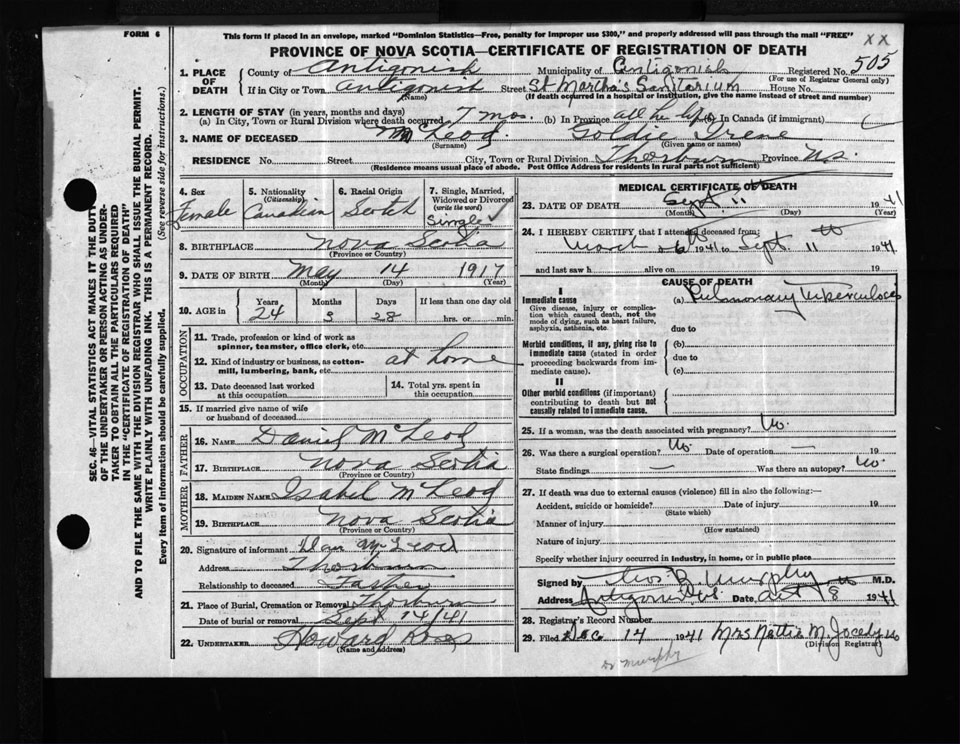 FORM 6
This form if placed in an envelope, marked "Dominion Statistics—Free, penalty for improper use $300," and properly addressed will pass through the mail "FREE"
PROVINCE OF NOVA SCOTIA—CERTIFICATE OF REGISTRATION OF DEATH
XX
505
1. PLACE OF DEATH
County of Antigonish Municipality of Antigonish Registered No.
(For use of Registrar General only)
If in City or Town Antigonish Street St Martha's Sanitorium House No.
(Name) (If death occurred in a hospital or institution, give the name instead of street and number)
2. LENGTH OF STAY (in years, months and days)
(a) In City, Town or Rural Division where death occurred 7 mos. (b) In Province all her life (c) In Canada (if immigrant)
3. NAME OF DECEASED McLeod. Goldie Irene
(Surname) (Given name or names)
RESIDENCE No. Street City, Town or Rural Division Thorburn Province N.S.
(Residence means usual place of abode. Post Office Address for residents in rural parts not sufficient)
4. Sex Female
5. Nationality (Citizenship) Canadian
6. Racial Origin Scotch
7. Single, Married, Widowed or Divorced (write the word) Single
8. BIRTHPLACE Nova Scotia
(Province or Country)
9. DATE OF BIRTH May 14 1917
(Month) (Day) (Year)
10. AGE in Years 24 Months 3 Days 28 If less than one day old hrs. or min.
OCCUPATION
11. Trade, profession or kind of work as spinner, teamster, office clerk, etc.
12. Kind of industry or business, as cotton-mill, lumbering, bank, etc. at home
13. Date deceased last worked at this occupation
14. Total yrs. spent in this occupation
15. If married give name of wife or husband of deceased
FATHER
16. NAME Daniel McLeod
17. BIRTHPLACE Nova Scotia
(Province or Country)
MOTHER
18. MAIDEN NAME Isabel McLeod
19. BIRTHPLACE Nova Scotia
(Province or Country)
20. Signature of informant Dan McLeod
Address Thorburn
Relationship to deceased Father
21. Place of Burial, Cremation or Removal Thorburn
Date of burial or removal Sept 14/41
22. UNDERTAKER Howard Ross
(Name and address)
MEDICAL CERTIFICATE OF DEATH
23. DATE OF DEATH Sept 11th 1941
(Month) (Day) (Year)
24. I HEREBY CERTIFY that I attended deceased from:
March 6th 1941 to Sept. 11th 1941
and last saw h alive on 19
CAUSE OF DEATH
I
Immediate cause (a) Pulmonary Tuberculosis
Give disease, injury or complication which caused death, not the mode of dying, such as heart failure, asphyxia, asthenia, etc.
due to
Morbid conditions, if any, giving rise to immediate cause (stated in order proceeding backwards from immediate cause).
(b)
due to
(c)
II
Other morbid conditions (if important) contributing to death but not causally related to immediate cause.
25. If a woman, was the death associated with pregnancy? No.
26. Was there a surgical operation? No. Date of operation —
State findings — Was there an autopsy? No.
27. If death was due to external causes (violence) fill in also the following:—
Accident, suicide or homicide? Date of injury 19
(State which)
Manner of injury
(How sustained)
Nature of injury
Specify whether injury occurred in industry, in home, or in public place
Signed by Geo. B. Murphy M.D.
Address Antigonish Date Oct 18th 1941
28. Registrar's Record Number
29. Filed Dec 14 1941 Mrs Nettie M.
(Division Registrar)
Dr Murphy
SEC. 46—VITAL STATISTICS ACT MAKES IT THE DUTY
OF THE UNDERTAKER OR PERSON ACTING AS UNDER-
TAKER TO OBTAIN ALL THE PARTICULARS REQUIRED
IN THE "CERTIFICATE OF REGISTRATION OF DEATH"
AND TO FILE THE SAME WITH THE DIVISION REGISTRAR WHO SHALL ISSUE THE BURIAL PERMIT.
WRITE PLAINLY WITH UNFADING INK. THIS IS A PERMANENT RECORD.
Every item of information should be carefully supplied. (See reverse side for instructions.)